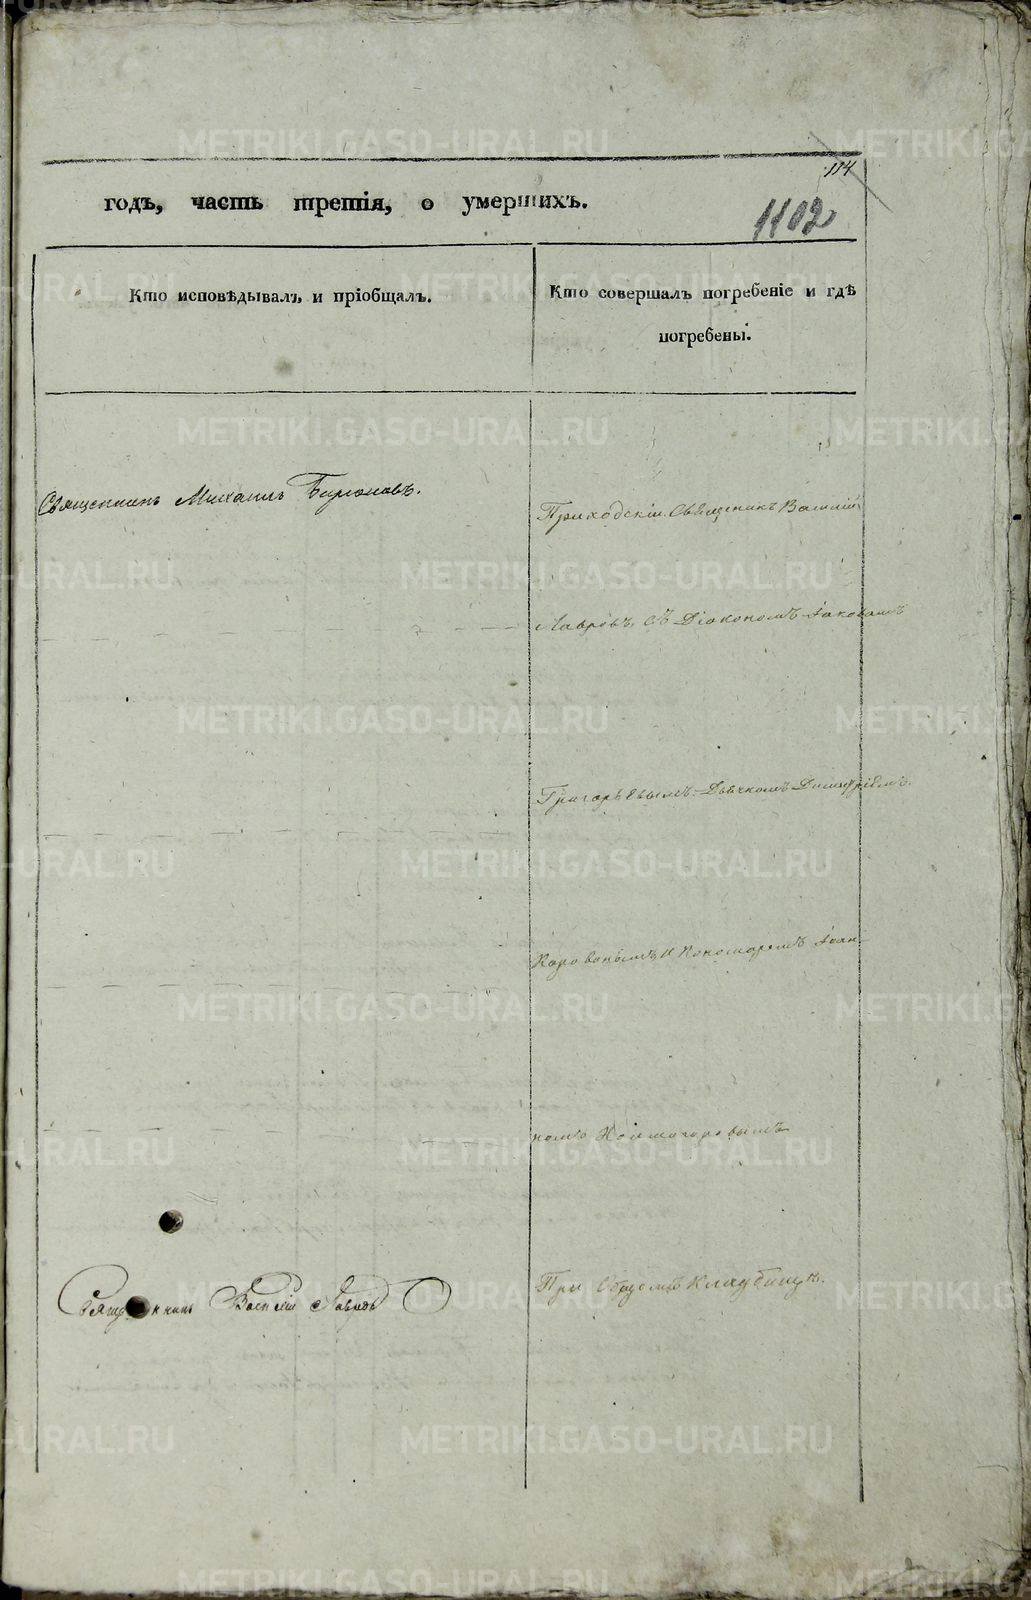 114
годъ, часть третія, о умершихъ.
1102
Кто исповѣдывалъ и пріобщалъ.
Кто совершалъ погребеніе и гдѣ
погребены.
Священникъ Михаилъ
Приходскій Священникъ Василій
Лавровъ, съ Діакономъ Іаковомъ
Григорьевымъ. Дьячкомъ Димитріемъ
и Пономаремъ Іоан-
номъ
При общемъ кладбищѣ.
Священникъ Василій Лавровъ
METRIKI.GASO-URAL.RU